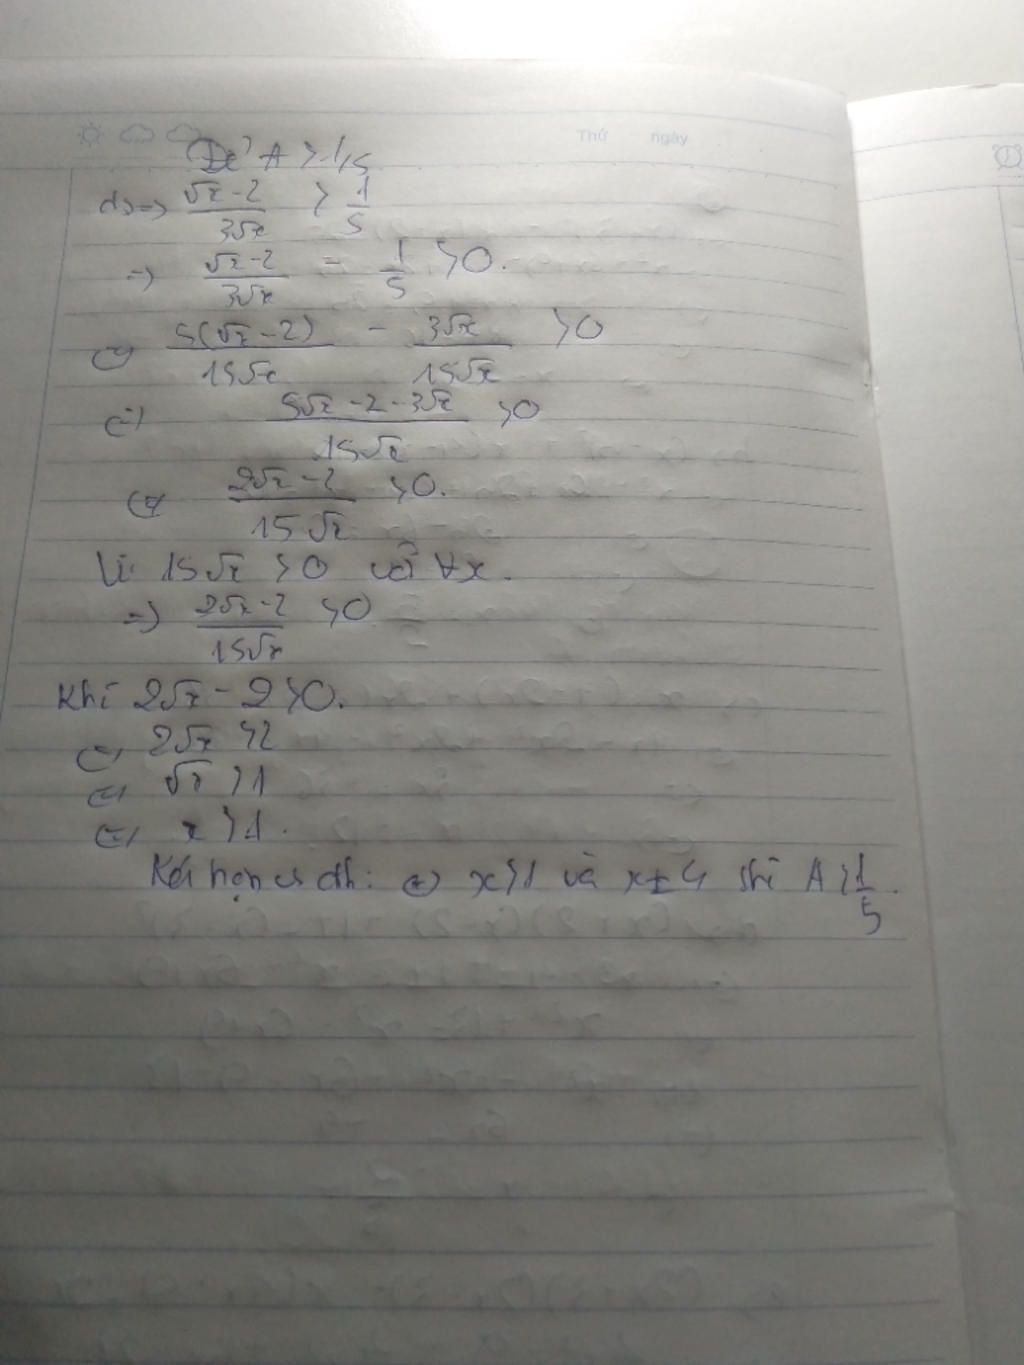 Thứ ngày
Để A > 1/5
(√x - 2)/(3√x) > 1/5
=> (√x - 2)/(3√x) - 1/5 > 0.
<=> 5(√x - 2)/(15√x) - 3√x/(15√x) > 0
<=> (5√x - 2 - 3√x)/(15√x) > 0
<=> (2√x - 2)/(15√x) > 0.
Vì 15√x > 0 với ∀x.
=> (2√x - 2)/(15√x) > 0
Khi 2√x - 2 > 0.
<=> 2√x > 2
<=> √x > 1
<=> x > 1.
Kết hợp đk: x > 1 và x ≠ 4 thì A > 1/5.